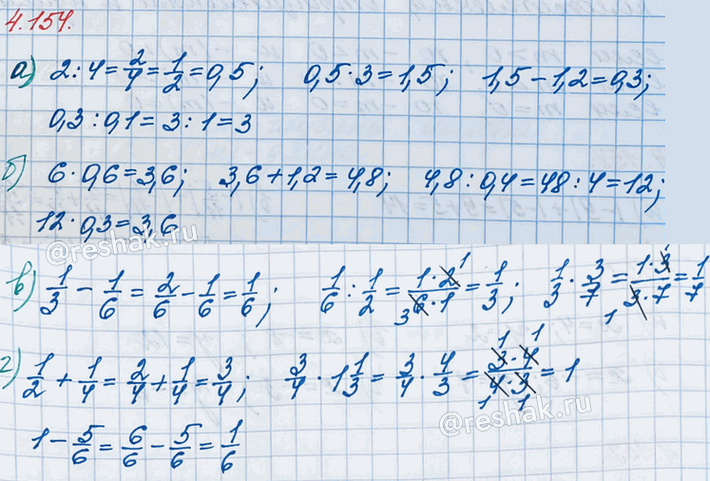 4.154.
а) 2:4=2/4=1/2=0,5; 0,5·3=1,5; 1,5-1,2=0,3;
0,3:0,1=3:1=3
б) 6·0,6=3,6; 3,6+1,2=4,8; 4,8:0,4=48:4=12;
12·0,3=3,6
@reshak.ru
в) 1/3 - 1/6 = 2/6 - 1/6 = 1/6; 1/6 : 1/2 = 1·2/6·1 = 1/3; 1/3 · 3/7 = 1·3/3·7 = 1/7
г) 1/2 + 1/4 = 2/4 + 1/4 = 3/4; 3/4 · 1 1/3 = 3/4 · 4/3 = 3·4/4·3 = 1
@reshak.ru
1 - 5/6 = 6/6 - 5/6 = 1/6